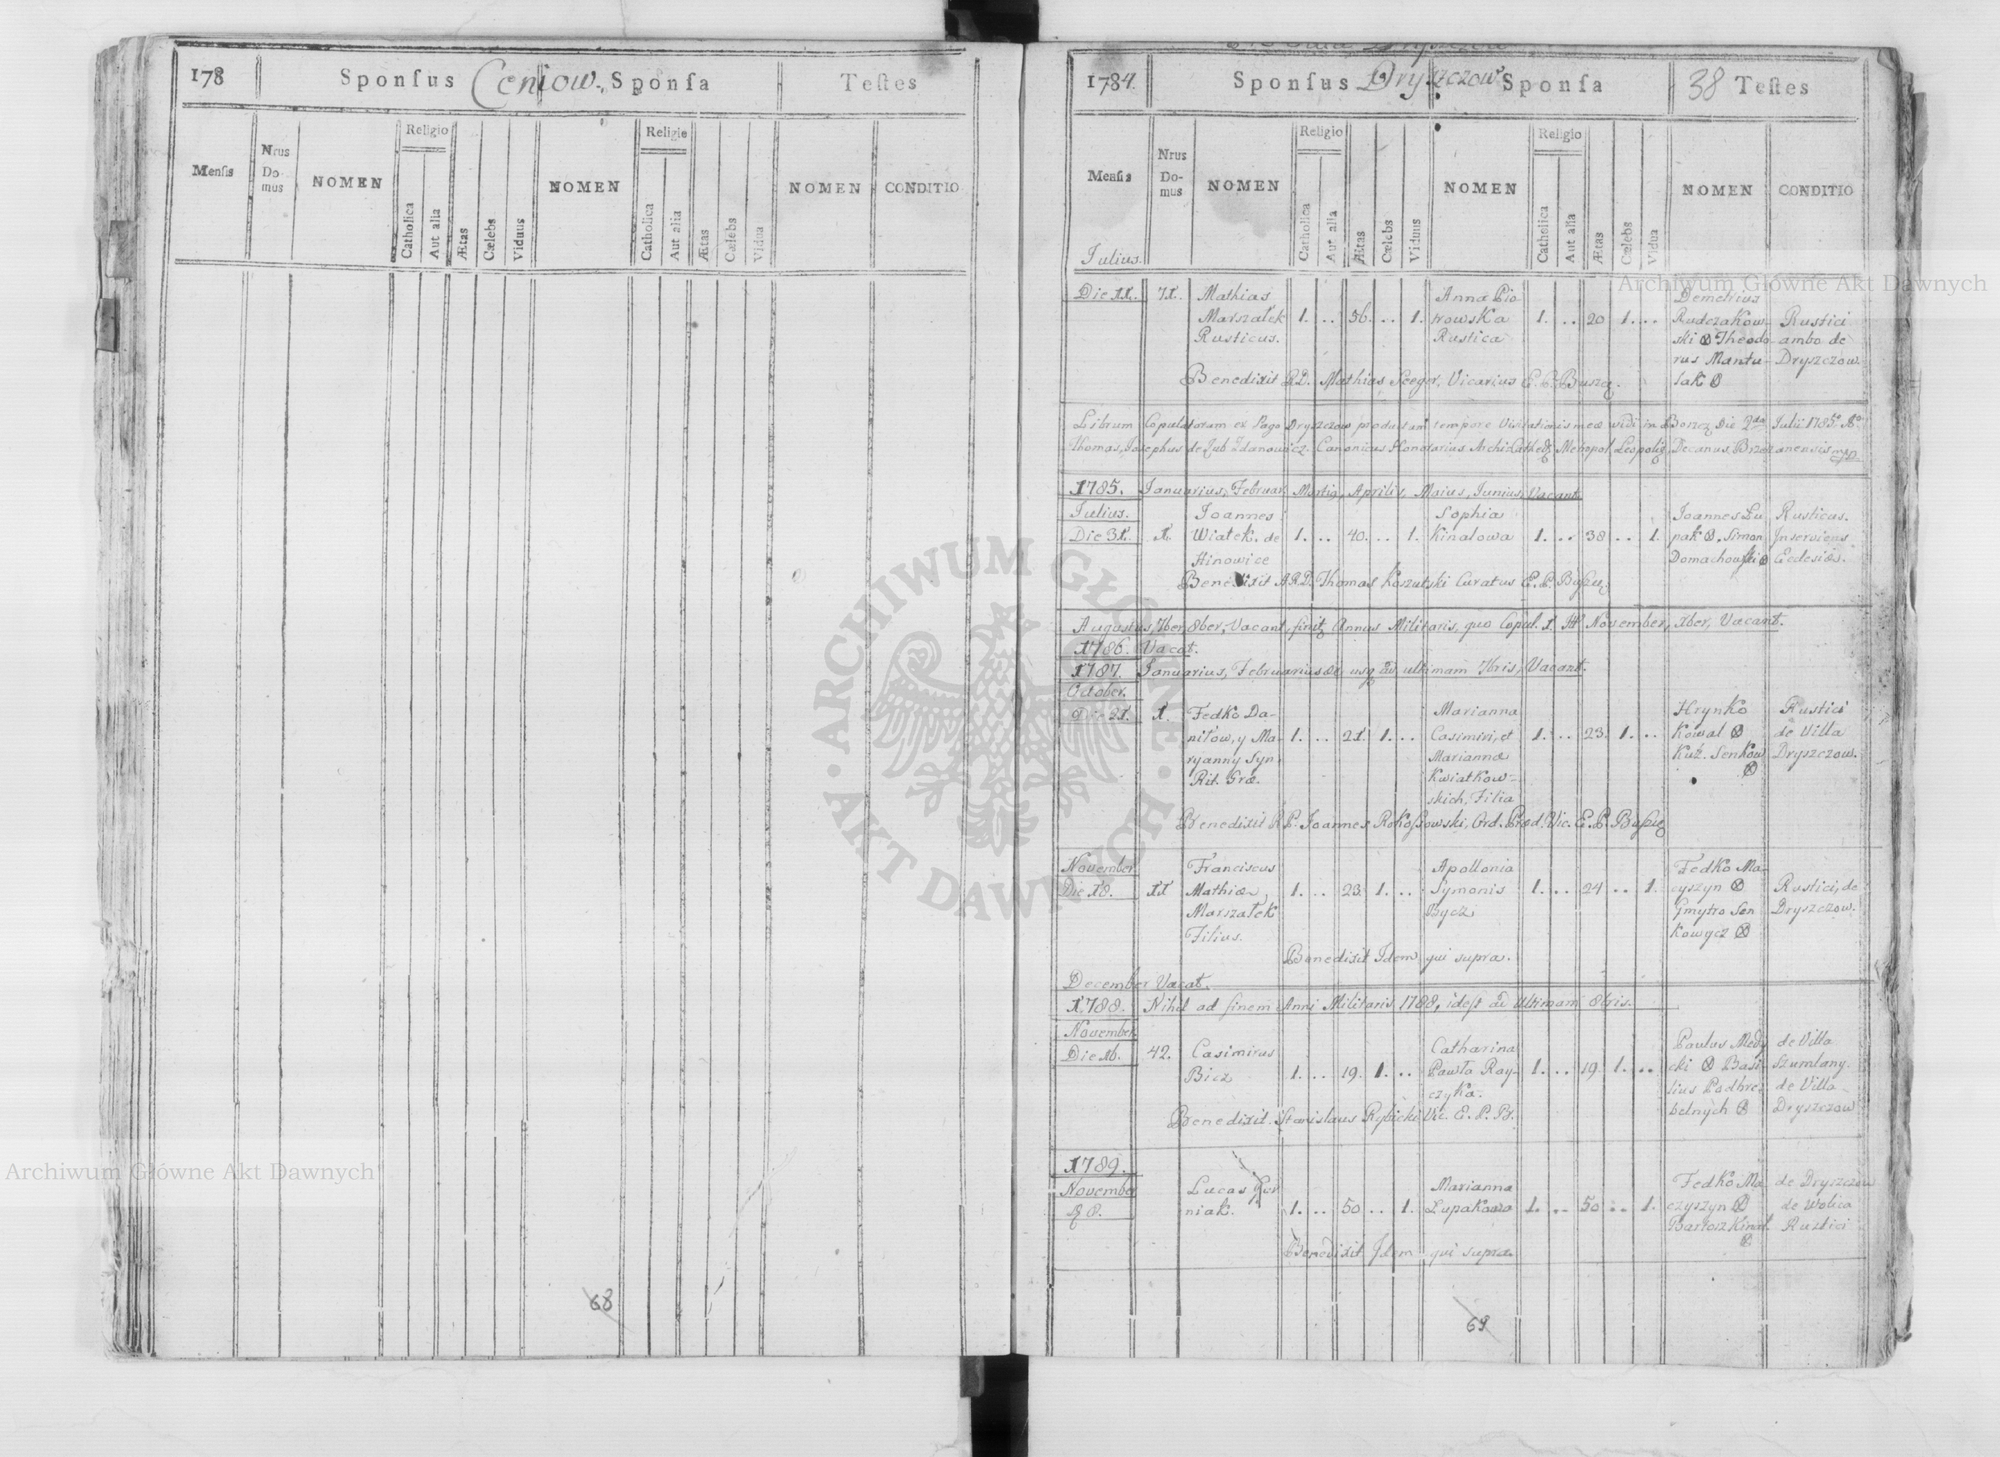 178 Sponſus Ceniow. Sponſa Teſtes
Menſis Nrus Domus NOMEN Religio Catholica Aut alia Ætas Cælebs Viduus NOMEN Religio Catholica Aut alia Ætas Cælebs Vidua NOMEN CONDITIO
68
1784. Sponſus Dryszczow Sponſa 38 Teſtes
Menſis Nrus Domus NOMEN Religio Catholica Aut alia Ætas Cælebs Viduus NOMEN Religio Catholica Aut alia Ætas Cælebs Vidua NOMEN CONDITIO
Julius.
Die 11. 71. Mathias Anna Pio Demetrius
Marszałek 1. .. 56. .. 1. trowska 1. .. 20 1. .. Rudczakow- Rustici
Rusticus. Rustica ski Theodo- ambo de
rus Mantu- Dryszczow
Benedixit R.D. Mathias Seeger, Vicarius E. P. lak
Librum Copulatorum ex Pago Dryszczow productum tempore Visitationis meæ vidi in Die 2da Julii 1785.
Thomas, Josephus de Zdanowicz Canonicus Honorarius Metropol. Decanus
1785. Januarius, Februar. Aprilis, Maius, Junius Vacant
Julius. Joannes Sophia Joannes Lu Rusticus.
Die 31. 1. Wiatek. de 1. .. 40. .. 1. Kinalowa 1. .. 38 .. 1. pak Simon Inserviens
Hinowice Domachowski Ecclesiæ.
Benedixit Thomas Koszutski Curatus E. P.
Augustus, 7ber, 8ber, Vacant, Annus Militaris, quo Copul. 1. November, Vacant.
1786. Vacat.
1787. Januarius, Februarius usq ad ultimam 7bris, Vacant.
October.
Die 21. 1. Fedko Da- Marianna Hrynko Rustici
niłow, y Ma- 1. .. 21. 1. .. Casimiri, et 1. .. 23. 1. .. Kowal de Villa
ryanny Syn Marianna Senkow Dryszczow.
Rit. Græ. Kwiatkow-
skich, Filia
Benedixit Joannes Ord. Præd. Vic. E. P.
November Franciscus Apollonia Fedko Ma-
Die 18. 11 Mathiæ, 1. .. 23. 1. .. Symonis 1. .. 24 .. 1. cyszyn Rustici, de
Marszałek Bycz Gmytro Sen Dryszczow.
Filius. kowycz
Benedixit Idem qui supra.
December Vacat.
1788. Nihil ad finem Anni Militaris 1788, idest ad ultimam 8bris.
November.
Die 16. 42. Casimirus Catharina Paulus Medy de Villa
Bicz 1. .. 19. 1. .. Pawła Ray- 1. .. 19. 1. .. cki Basi- Szumlany.
czyka. lius Podhre- de Villa
belnych Dryszczow
Benedixit Stanislaus Rybicki Vic. E. P. B.
1789.
November Lucas Marianna Fedko Ma- de Dryszczow
8. niak. 1. .. 50 .. 1. Łupakowa 1. .. 50 .. 1. czyszyn de Wolica
Bartosz Kinal Rustici
Benedixit Idem qui supra
69
Archiwum Główne Akt Dawnych
Archiwum Główne Akt Dawnych
ARCHIWUM GŁÓWNE · AKT DAWNYCH ·